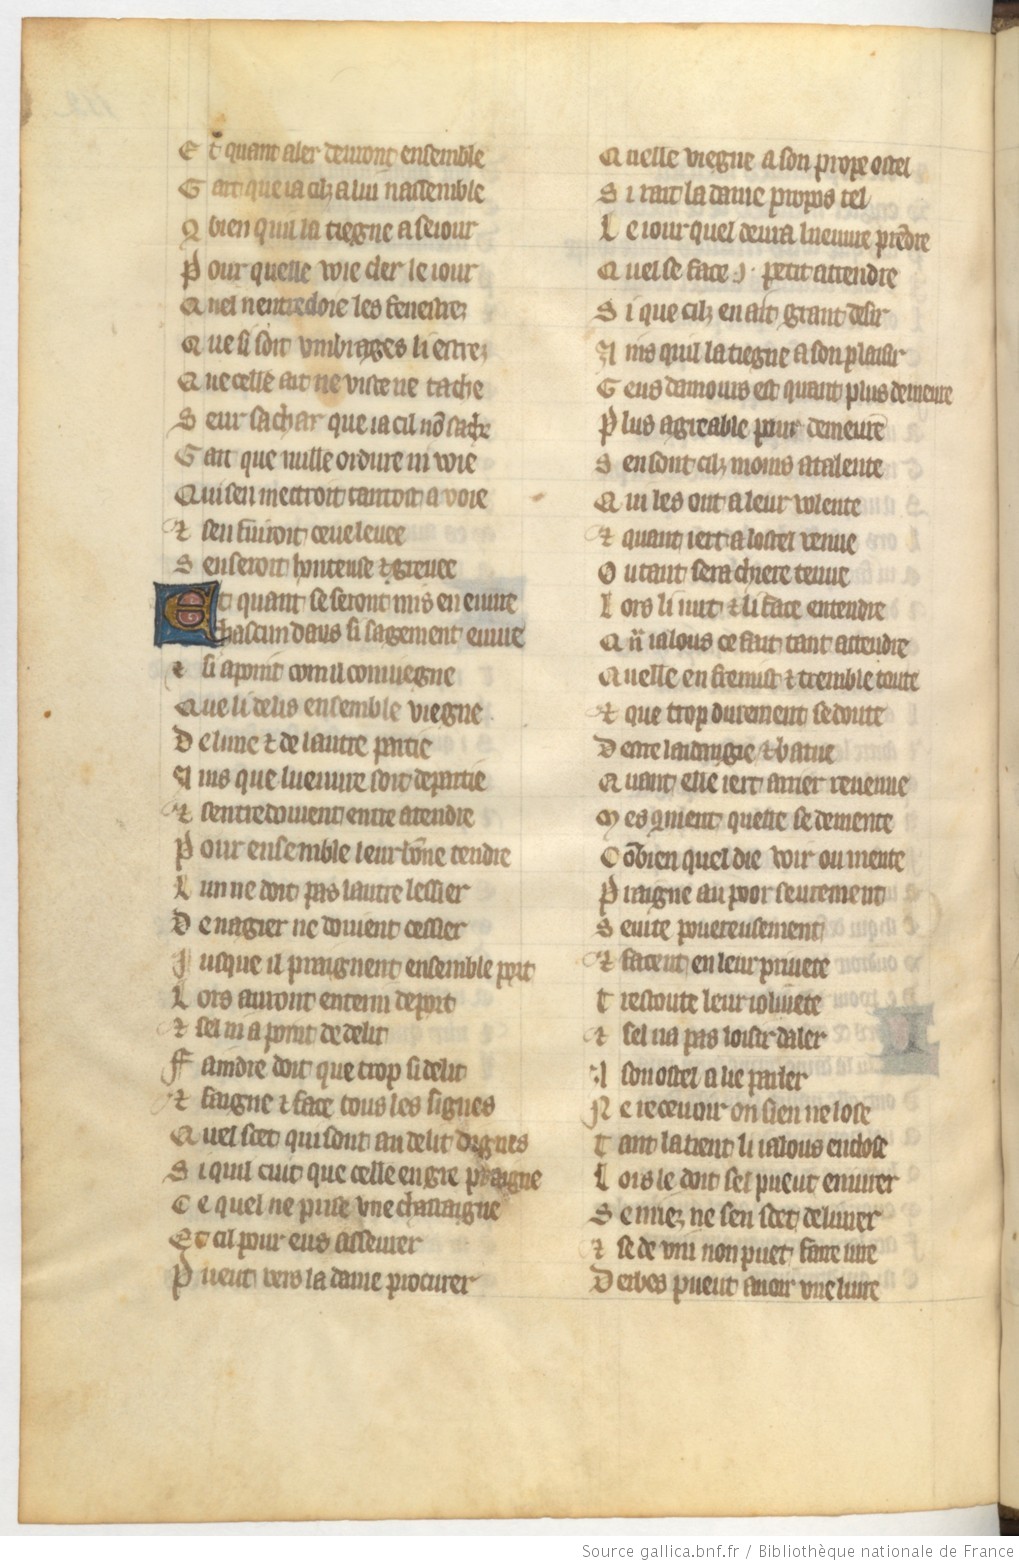 Et quant aler deuront ensemble
Gart que ia cilz a lui nassemble
Q bien quil la tiegne a seiour
Pour quelle voie cler le iour
Quel nentredoie les fenestrez
Que si soit vmbrages li estrez
Que celle ait ne visce ne tache
Seur sachar que ia cil nō sache
Gart que nulle ordure ni voie
Qui sen mettroit tantost a voie
⁊ sen fuiroit ceue leuee
Sen seroit honteuse ⁊ greuee
Et quant se seront mis en euure
Chascun daus si sagement euure
⁊ si a point com il conuiegne
Que li delis ensemble viegne
De lune ⁊ de lautre partie
Ains que luevure soit departie
⁊ sentredoiuent entre atendre
Pour ensemble leur bōne tendre
Lun ne doit pas lautre lessier
De nagier ne doiuent cesser
Jusque il praignent ensemble port
Lors auront enterin deport
⁊ sel ni a point de delit
Faindre doit que trop si delit
⁊ faigne ⁊ face tous les signes
Quel scet qui sont au delit dignes
Si quil cuit que celle en gre praigne
Ce quel ne prise vne chastaigne
Et cil pour eus asseurer
Puent vers la dame procurer
Quelle viegne a son propre ostel
Si rait la dame propos tel
Le iour quel deura luevure prēdre
Quel se face .j. petit attendre
Si que cilz en ait grant desir
Ains quil la tiegne a son plaisir
Geus damours est quant plus demeure
Plus agreable pour demeure
Sen sont cilz moins atalente
Qui les ont a leur volente
⁊ quant iert a lostel venue
Ou tant sera chiere tenue
Lors li iurt ⁊ li face entendre
Qū ialous ce fait tant attendre
Quelle en fremist ⁊ tremble toute
⁊ que trop durement se doute
Destre laidangie ⁊ batue
Quant elle iert arrier reuenue
Mes qment quelle se demente
Cōbien quel die voir ou mente
Praigne au poor seurement
Seurte poureusement
⁊ facent en leur priuete
Trestoute leur ioliuete
⁊ sel na pas loisir daler
A son ostel a lie parler
Ne receuoir on sien ne lose
Tant la tient li ialous enclose
Lors le doit sel pueut enyurer
Se miez ne sen scet deliurer
⁊ se de vin non puet faire iure
Derbes pueut auoir vne liure